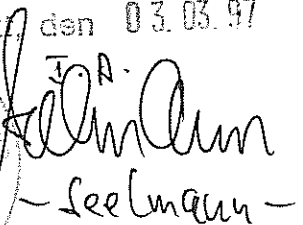 den 03.03.97
I.A.
Seelmann
- Seelmann -